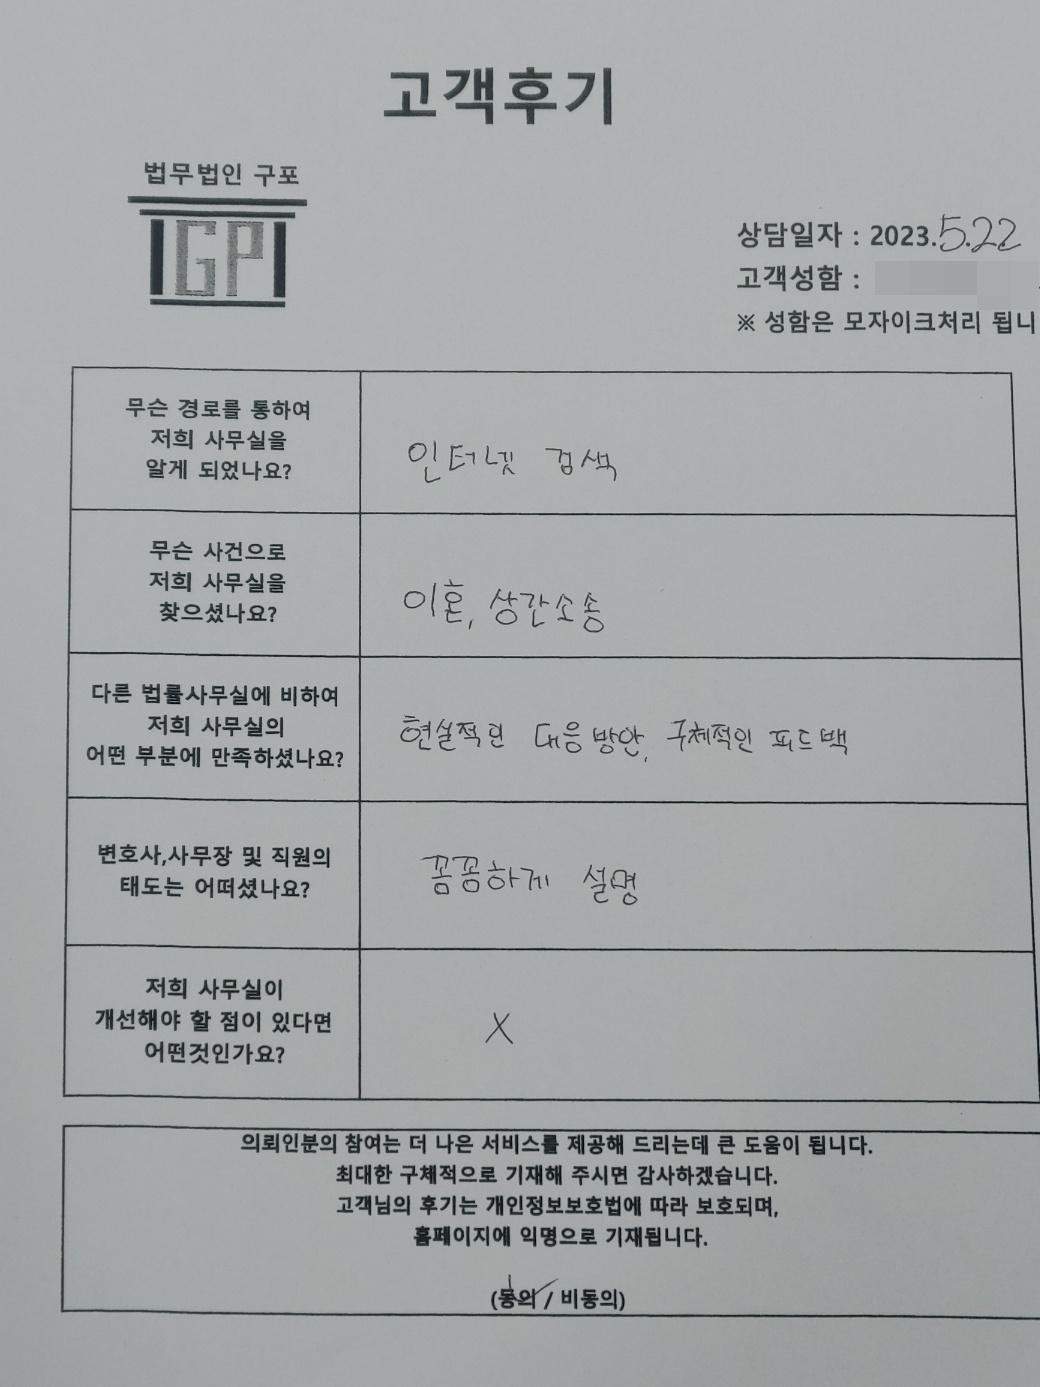 고객후기
법무법인 구포
GP
상담일자 : 2023.5.22
고객성함 :
※ 성함은 모자이크처리 됩니
무슨 경로를 통하여
저희 사무실을
알게 되었나요?
인터넷 검색
무슨 사건으로
저희 사무실을
찾으셨나요?
이혼, 상간소송
다른 법률사무실에 비하여
저희 사무실의
어떤 부분에 만족하셨나요?
현실적인 대응방안, 구체적인 피드백
변호사,사무장 및 직원의
태도는 어떠셨나요?
꼼꼼하게 설명
저희 사무실이
개선해야 할 점이 있다면
어떤것인가요?
X
의뢰인분의 참여는 더 나은 서비스를 제공해 드리는데 큰 도움이 됩니다.
최대한 구체적으로 기재해 주시면 감사하겠습니다.
고객님의 후기는 개인정보보호법에 따라 보호되며,
홈페이지에 익명으로 기재됩니다.
(동의 / 비동의)